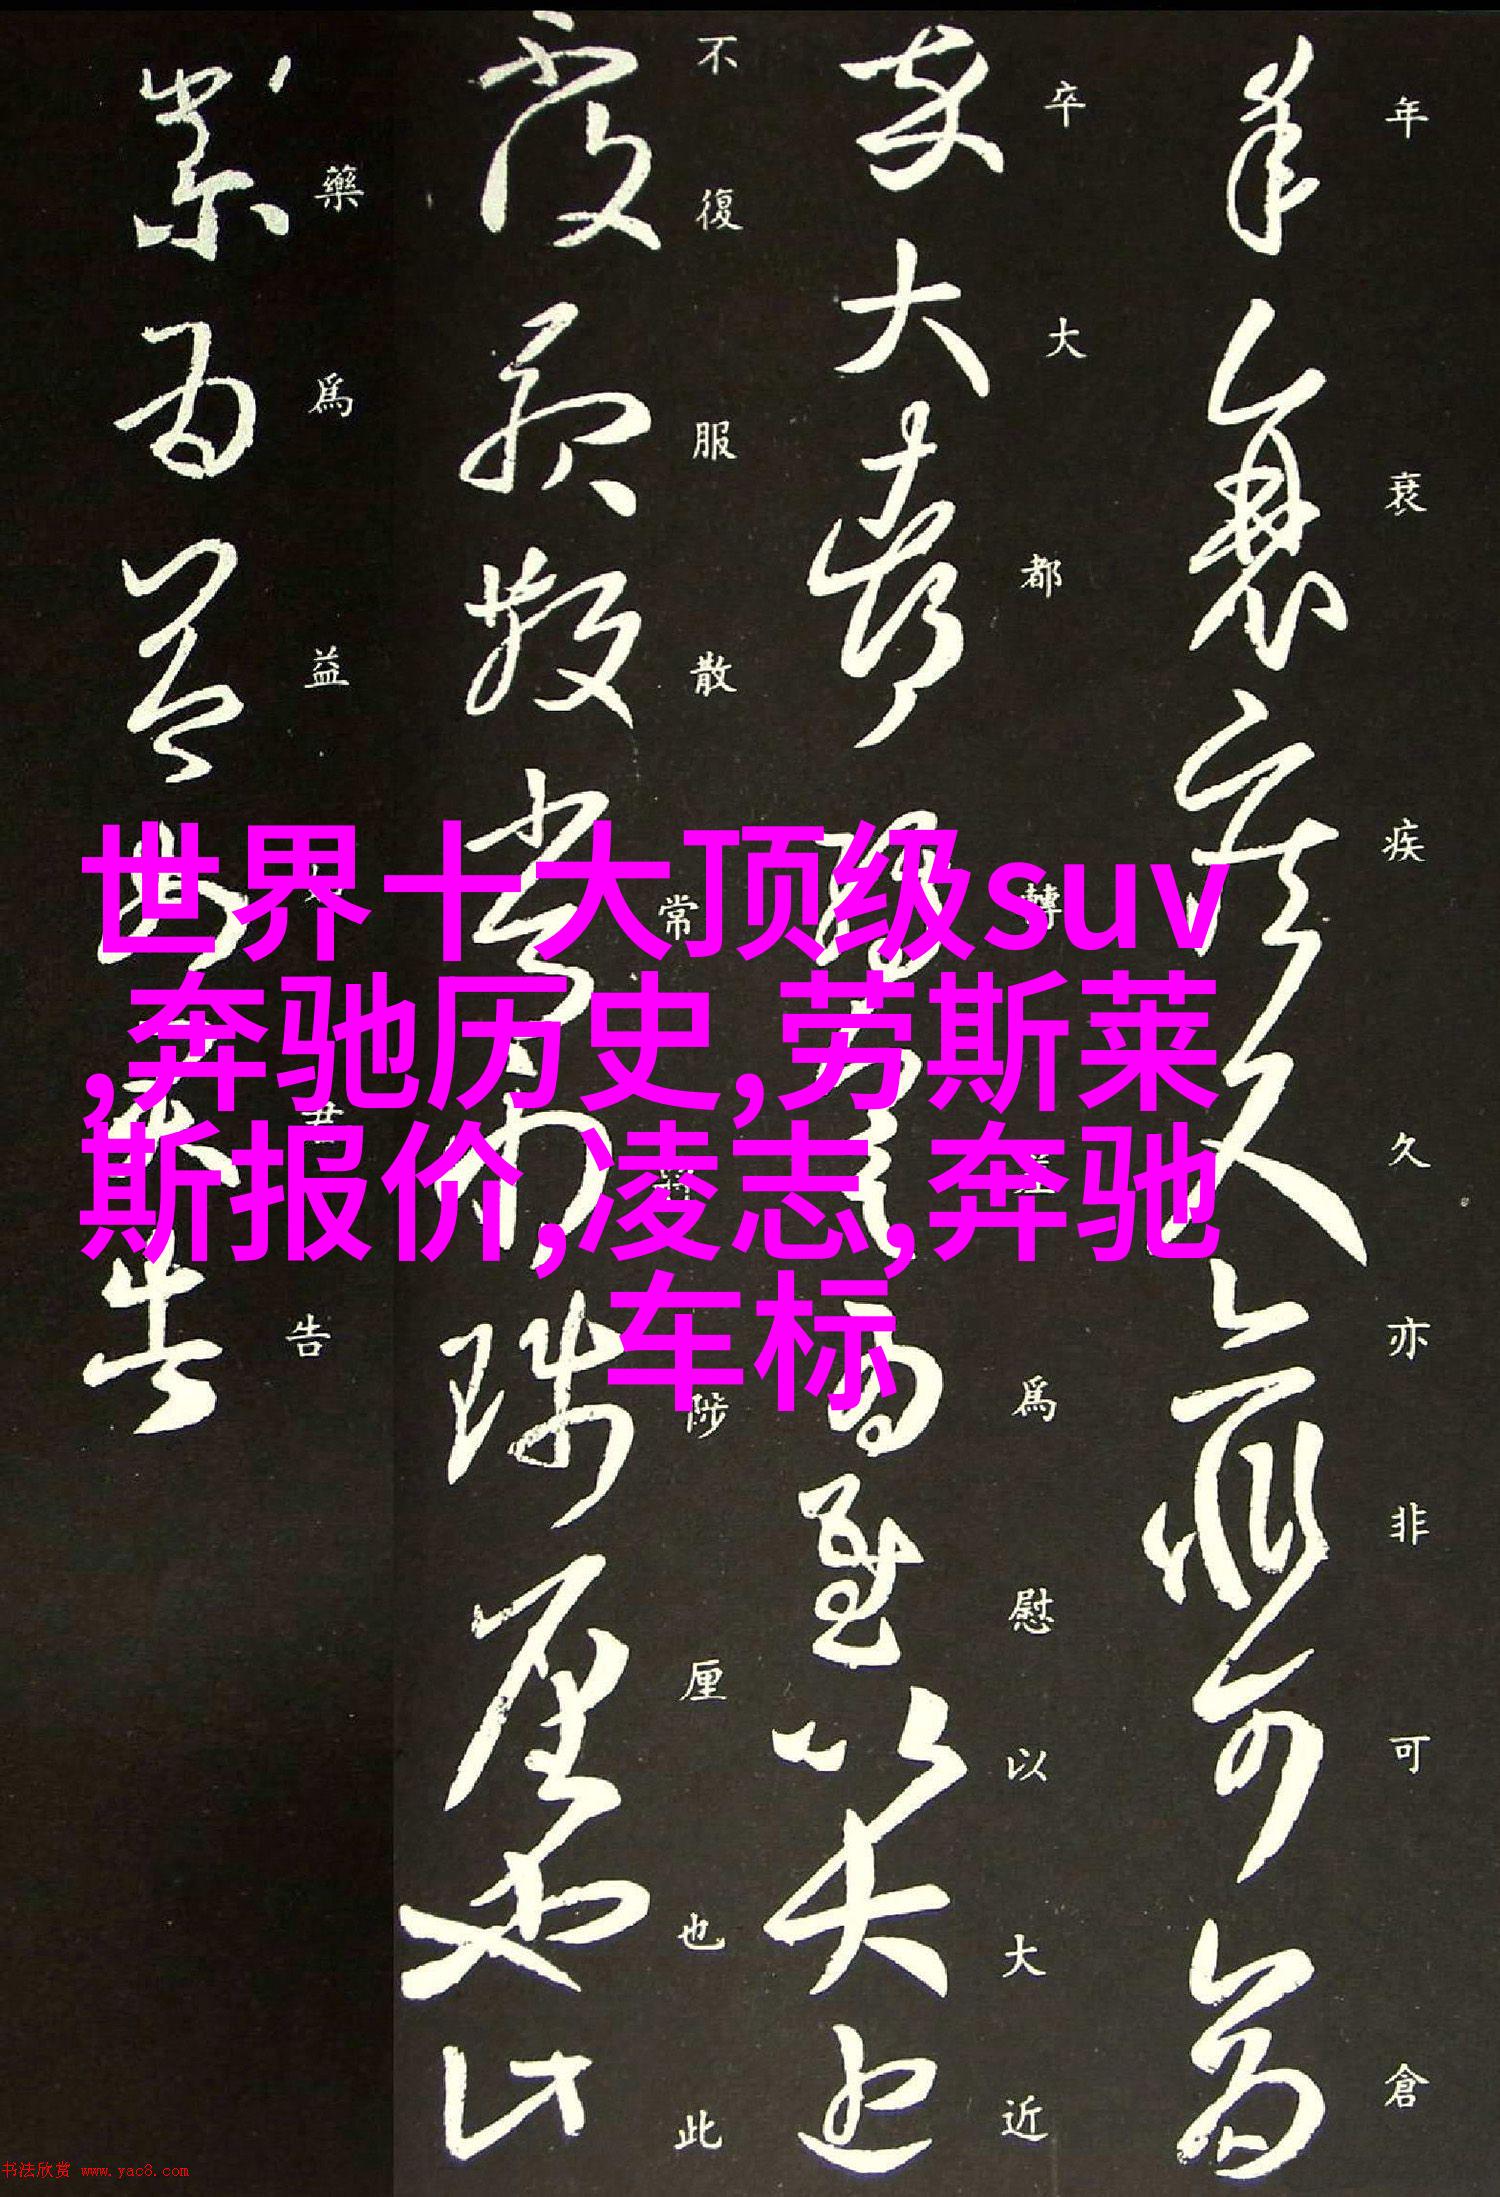 年衰疾久亦非可倉
卒大都轉差爲慰以大近
不復服散常將陟厘也此
藥爲益告
世界十大顶级suv
,奔驰历史,劳斯莱
斯报价,凌志,奔驰
车标
书法欣赏 www.yac8.com